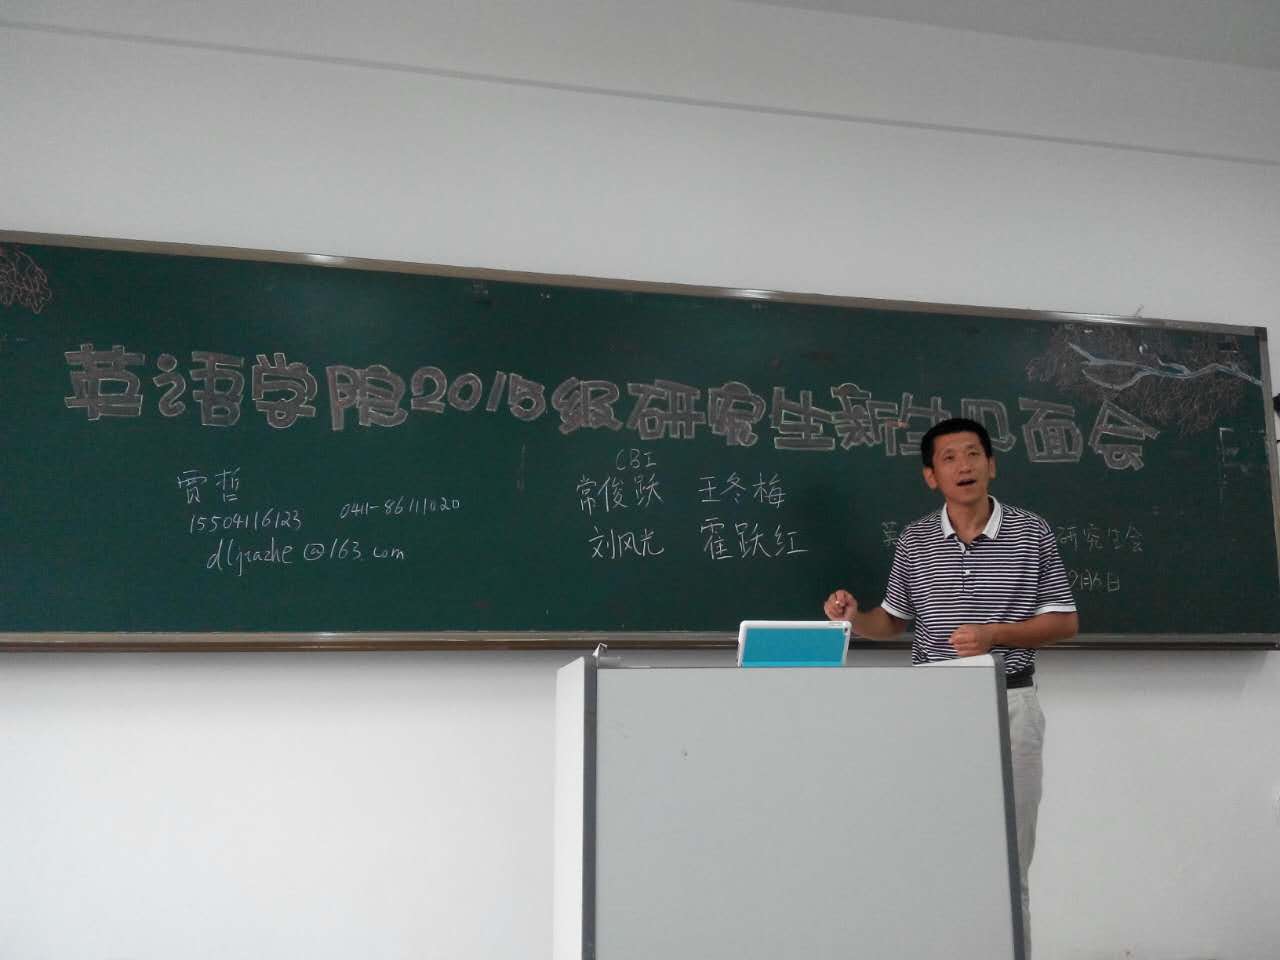 英语学院2015级研究生新生见面会
贾哲
15504116123
0411-86111020
dljiazhe@163.com
CBI
常俊跃 王冬梅
刘风光 霍跃红
英 研究生会
9月6日